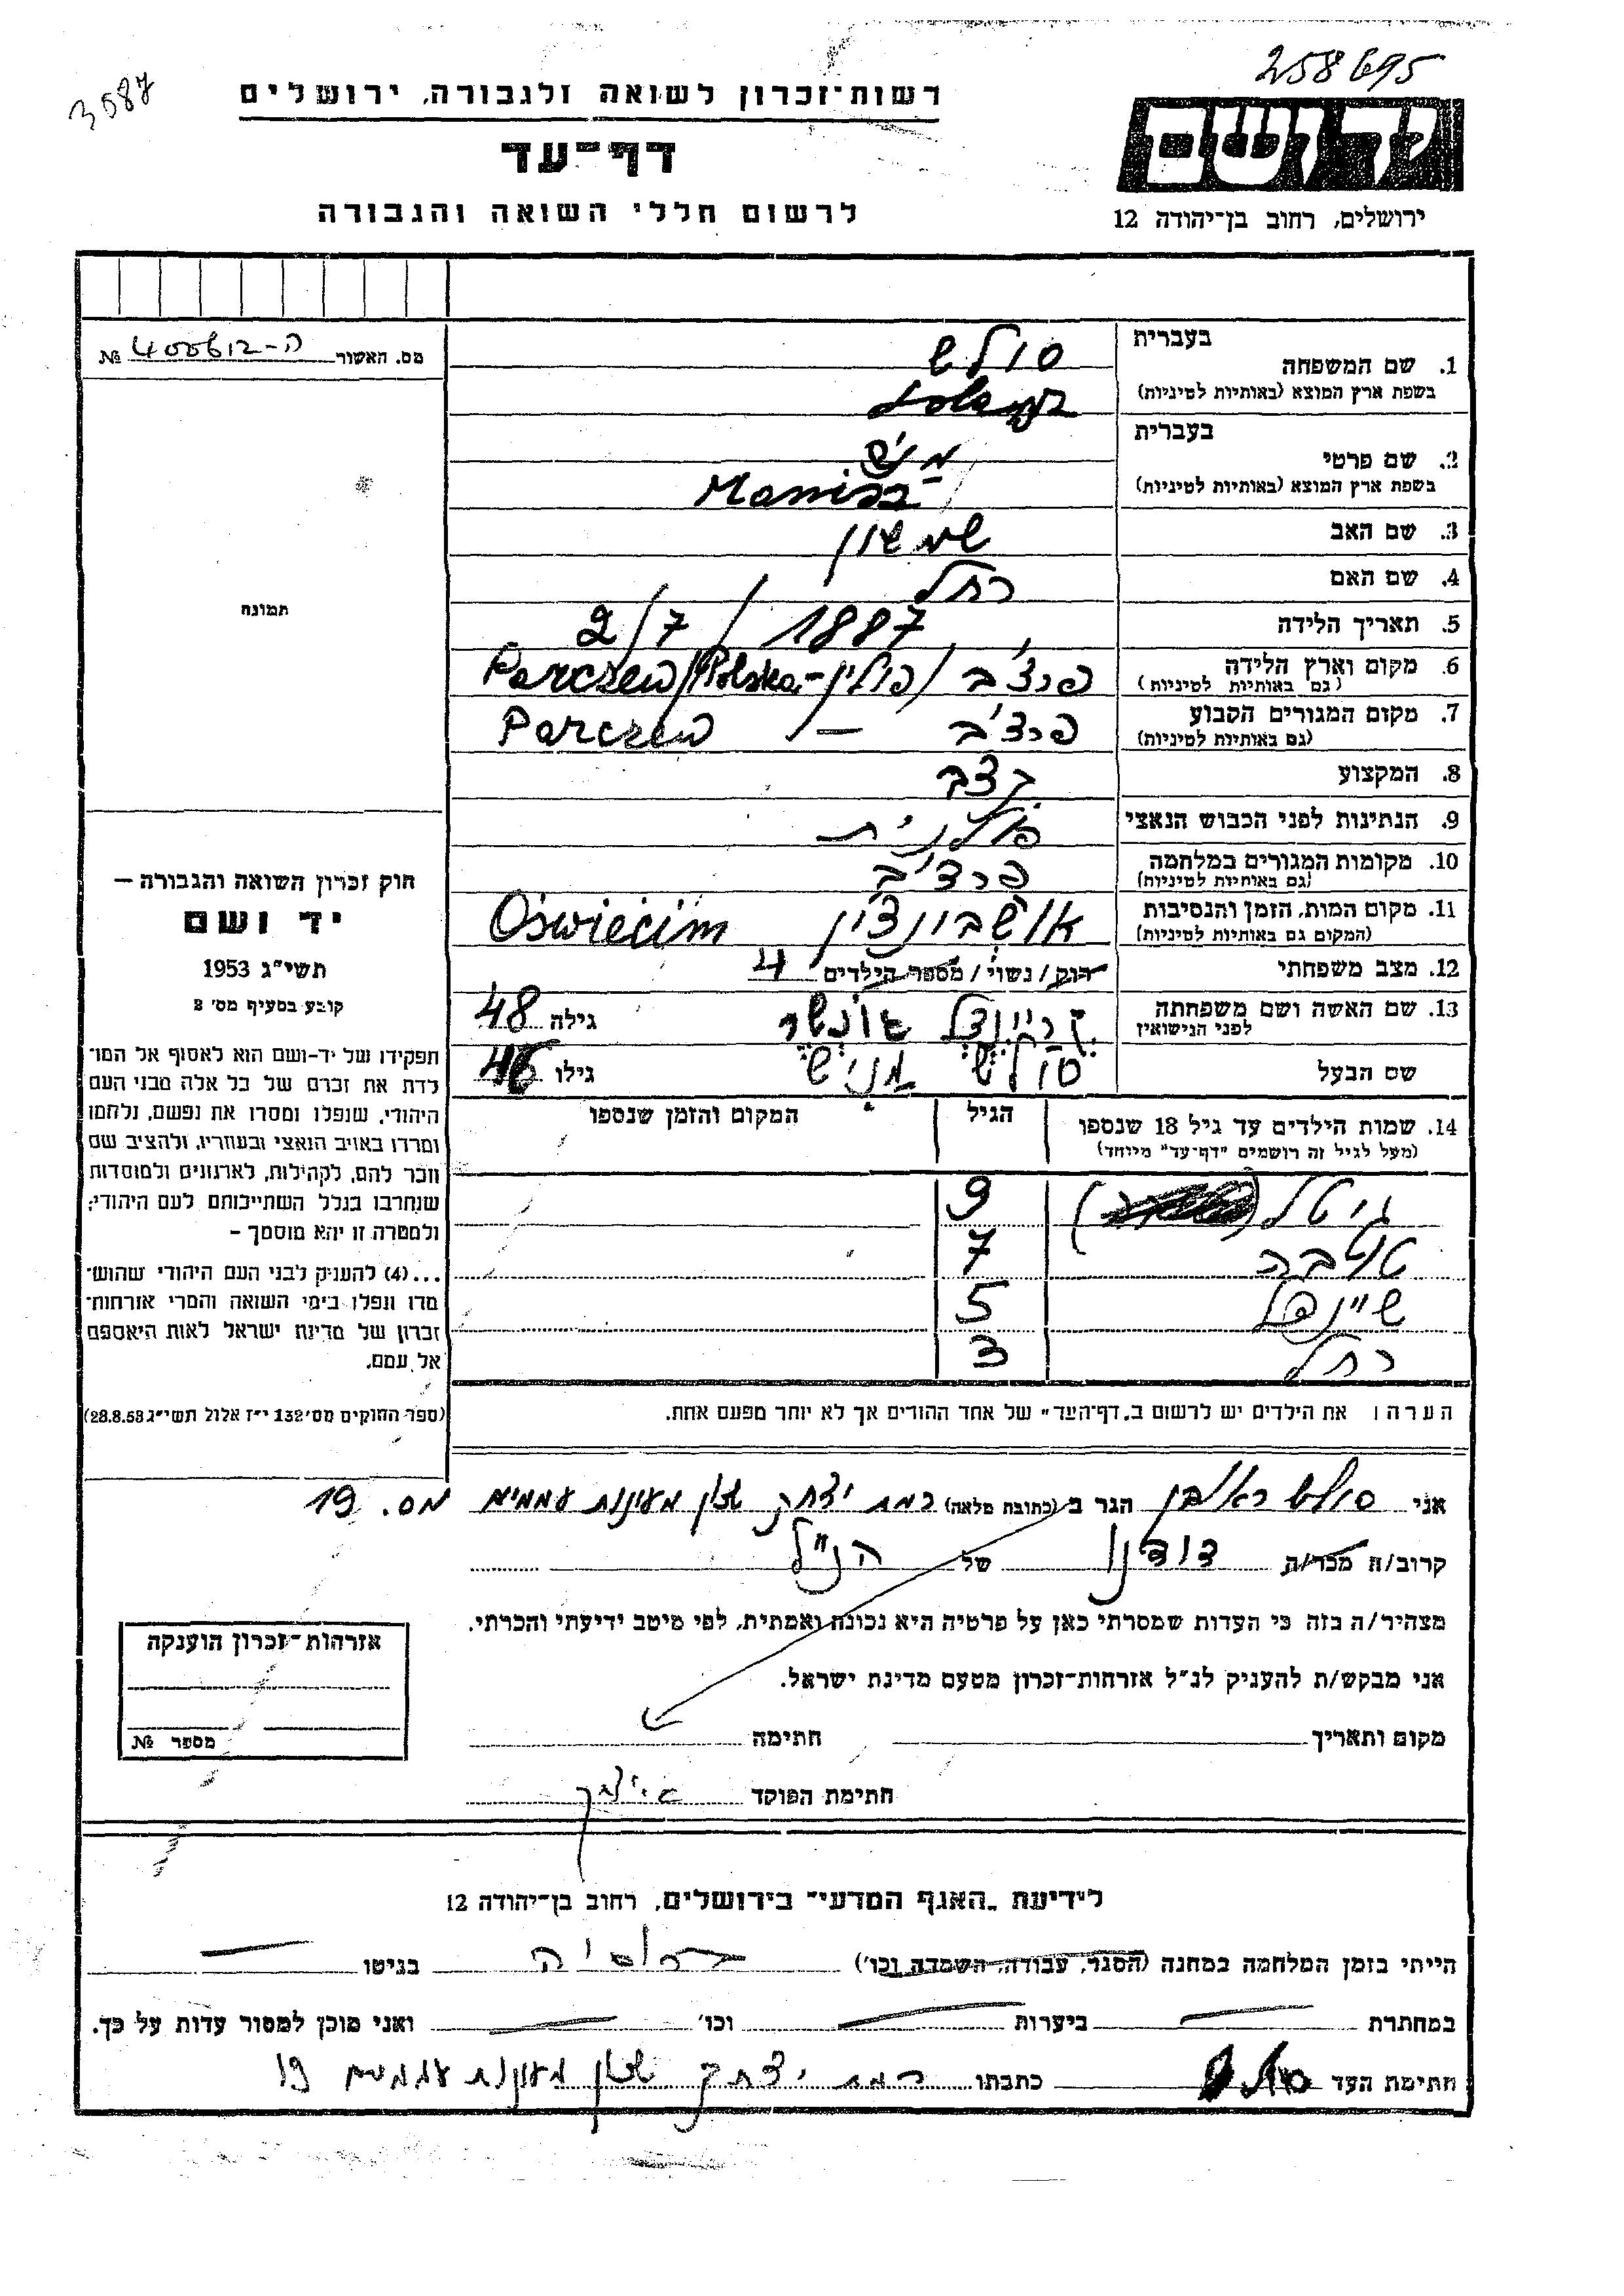 258695
3587
רשות־זכרון לשואה ולגבורה, ירושלים
דף־עד
לרשום חללי השואה והגבורה
יד ושם
ירושלים, רחוב בן־יהודה 12
מס. האשור ה-400612 №
תמונה
חוק זכרון השואה והגבורה —
יד ושם
תשי״ג 1953
קובע בסעיף מס׳ 2
תפקידו של יד-ושם הוא לאסוף אל המו־
לדת את זכרם של כל אלה מבני העם
היהודי, שנפלו ומסרו את נפשם, נלחמו
ומרדו באויב הנאצי ובעוזריו, ולהציב שם
וזכר להם, לקהילות, לארגונים ולמוסדות
שנחרבו בגלל השתייכותם לעם היהודי;
ולמטרה זו יהא מוסמך –
...(4) להעניק לבני העם היהודי שהוש־
מדו ונפלו בימי השואה והמרי אזרחות־
זכרון של מדינת ישראל לאות היאספם
אל עמם.
(ספר החוקים מס׳ 132 י״ז אלול תשי״ג 28.8.53)
בעברית
1. שם המשפחה סולש
בשפת ארץ המוצא (באותיות לטיניות)
בעברית
2. שם פרטי מניש
בשפת ארץ המוצא (באותיות לטיניות)
3. שם האב שמשון
4. שם האם רחל
5. תאריך הלידה 2/7/1887
6. מקום וארץ הלידה פרצ'ב / פולין - Parczew/Polska
(גם באותיות לטיניות)
7. מקום המגורים הקבוע פרצ'ב — Parczew
(גם באותיות לטיניות)
8. המקצוע קצב
9. הנתינות לפני הכבוש הנאצי פולנית
10. מקומות המגורים במלחמה פרצ'ב
(גם באותיות לטיניות)
11. מקום המות, הזמן והנסיבות אושבינצ'ין Oświęcim
(המקום גם באותיות לטיניות)
12. מצב משפחתי רווק / נשוי / מספר הילדים 4
13. שם האשה ושם משפחתה גילה 48
לפני הנישואין
שם הבעל סולש מניש גילו 46
14. שמות הילדים עד גיל 18 שנספו הגיל המקום והזמן שנספו
(מעל לגיל זה רושמים "דף־עד" מיוחד)
גיטל 9
טויבה 7
שיינדל 5
רחל 3
הערה: את הילדים יש לרשום ב„דף־העד" של אחד ההורים אך לא יותר מפעם אחת.
אני סולש ראובן הגר ב (כתובת מלאה) רמת יצחק שכון מעונות עממיים מס. 19
קרוב/ה מכר/ה דודנו של הנ"ל
מצהיר/ה בזה כי העדות שמסרתי כאן על פרטיה היא נכונה ואמתית, לפי מיטב ידיעתי והכרתי.
אני מבקש/ת להעניק לנ״ל אזרחות־זכרון מטעם מדינת ישראל.
מקום ותאריך חתימה
חתימת הפוקד
אזרחות־זכרון הוענקה
מספר №
לידיעת „האגף המדעי" בירושלים, רחוב בן־יהודה 12
הייתי בזמן המלחמה במחנה (הסגר, עבודה, השמדה וכו׳) ברוסיה בגיטו —
במחתרת — ביערות — וכו׳ — ואני מוכן למסור עדות על כך.
חתימת העד כתבתו רמת יצחק שכון מעונות עממיים 19